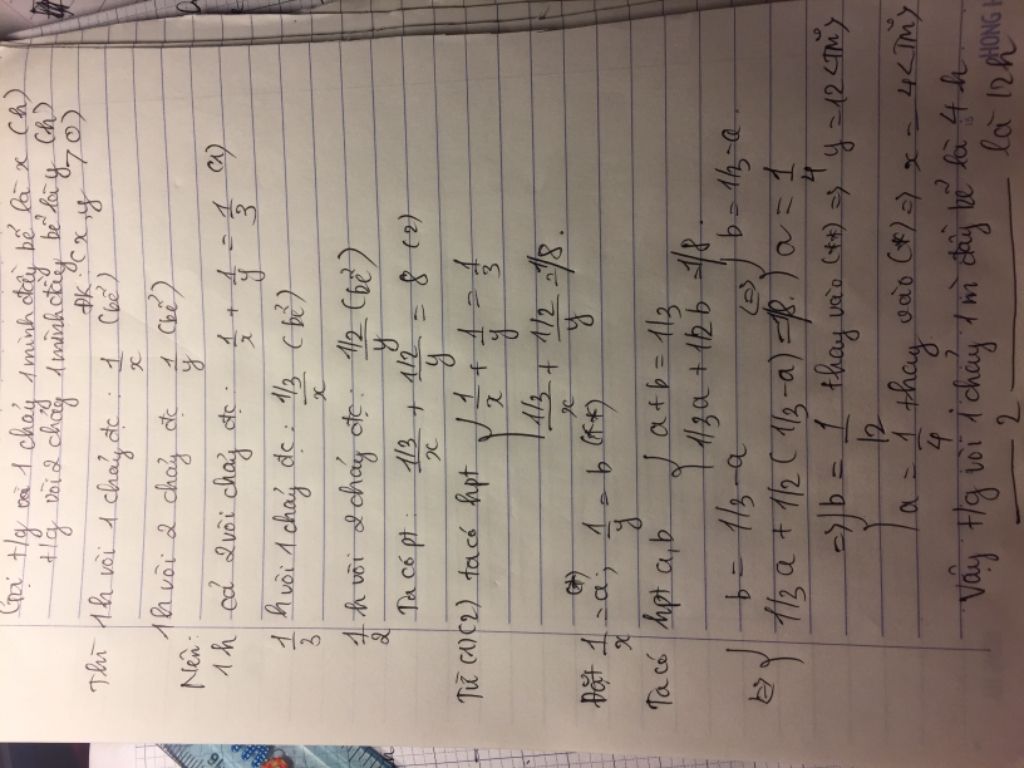 Gọi t/g vòi 1 chảy 1 mình đầy bể là x (h)
t/g vòi 2 chảy 1 mình đầy bể là y (h)
ĐK (x, y > 0)
Thì 1h vòi 1 chảy đc: 1/x (bể)
1h vòi 2 chảy đc 1/y (bể)
Nên:
1h cả 2 vòi chảy đc: 1/x + 1/y = 1/3 (1)
1/3 h vòi 1 chảy đc: 1/3/x (bể)
1/2 h vòi 2 chảy đc: 1/2/y (bể)
Ta có pt: 1/3/x + 1/2/y = 8 (2)
Từ (1)(2) ta có hpt { 1/x + 1/y = 1/3
1/3/x + 1/2/y = 1/8.
Đặt 1/x = a; (*) 1/y = b (**)
Ta có hpt a,b { a + b = 1/3
1/3a + 1/2b = 1/8.
<=> { b = 1/3 - a <=> { b = 1/3 - a.
1/3a + 1/2(1/3 - a) = 1/8. a = 1/4
=> { b = 1/12 thay vào (**) => y = 12 <TM>
a = 1/4 thay vào (*) => x = 4 <TM>
Vậy t/g vòi 1 chảy 1 m đầy bể là 4h.
2 là 12h
PHONG